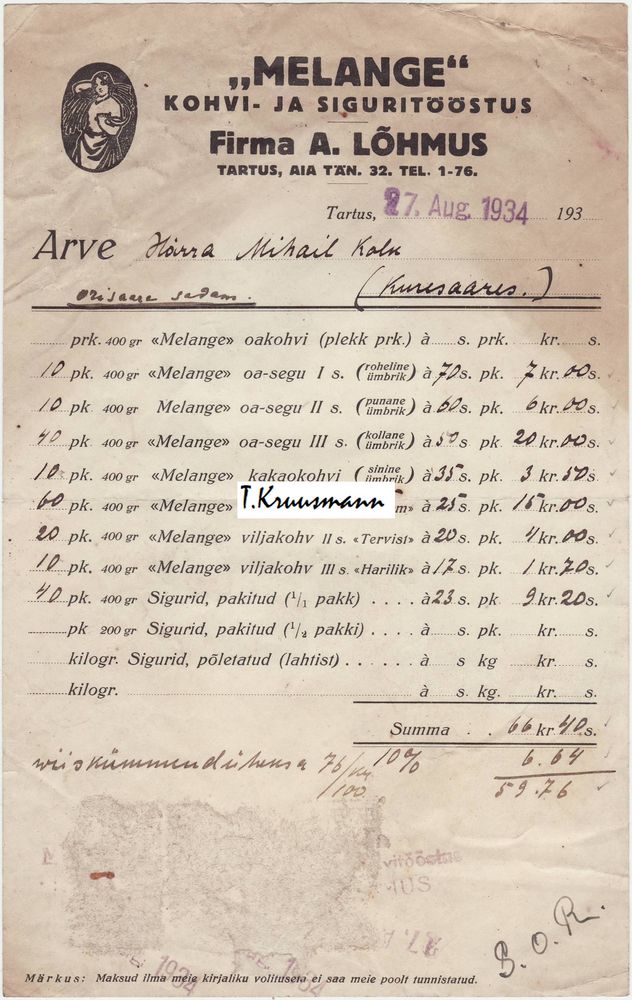 „MELANGE“
KOHVI- JA SIGURITÖÖSTUS
Firma A. LÕHMUS
TARTUS, AIA TÄN. 32. TEL. 1-76.
Tartus, 27. Aug. 1934 193
Arve Härra Mihail Kolk
Orisaare sadam. (Kuresaares.)
prk. 400 gr «Melange» oakohvi (plekk prk.) à s. prk. kr. s.
10 pk. 400 gr «Melange» oa-segu I s. (roheline ümbrik) à 70 s. pk. 7 kr. 00 s.
10 pk. 400 gr Melange» oa-segu II s. (punane ümbrik) à 60 s. pk. 6 kr. 00 s.
40 pk. 400 gr «Melange» oa-segu III s. (kollane ümbrik) à 50 s pk. 20 kr. 00 s.
10 pk. 400 gr «Melange» kakaokohvi (sinine ümbrik) à 35 s. pk. 3 kr. 50 s
60 pk. 400 gr «Melange» T.Kruusmann m» à 25 s. pk. 15 kr. 00 s.
20 pk. 400 gr «Melange» viljakohv II s. «Tervist» à 20 s. pk. 4 kr. 00 s.
10 pk. 400 gr «Melange» viljakohv III s. «Harilik» à 17 s. pk. 1 kr. 70 s.
40 pk. 400 gr Sigurid, pakitud (1/1 pakk) . . . . à 23 s. pk. 9 kr. 20 s.
pk 200 gr Sigurid, pakitud (1/2 pakki) . . . . à s. pk. kr. s.
kilogr. Sigurid, põletatud (lahtist) . . . . . . à s kg kr. s.
kilogr. à s kg. kr. s.
Summa . . 66 kr 40 s.
wiiskümmendüheksa 76/100 kr 10% 6.64
59.76
vitööstus
MUS
27. A
1934
1934
B. O. R.
Märkus: Maksud ilma meie kirjaliku volituseta ei saa meie poolt tunnistatud.